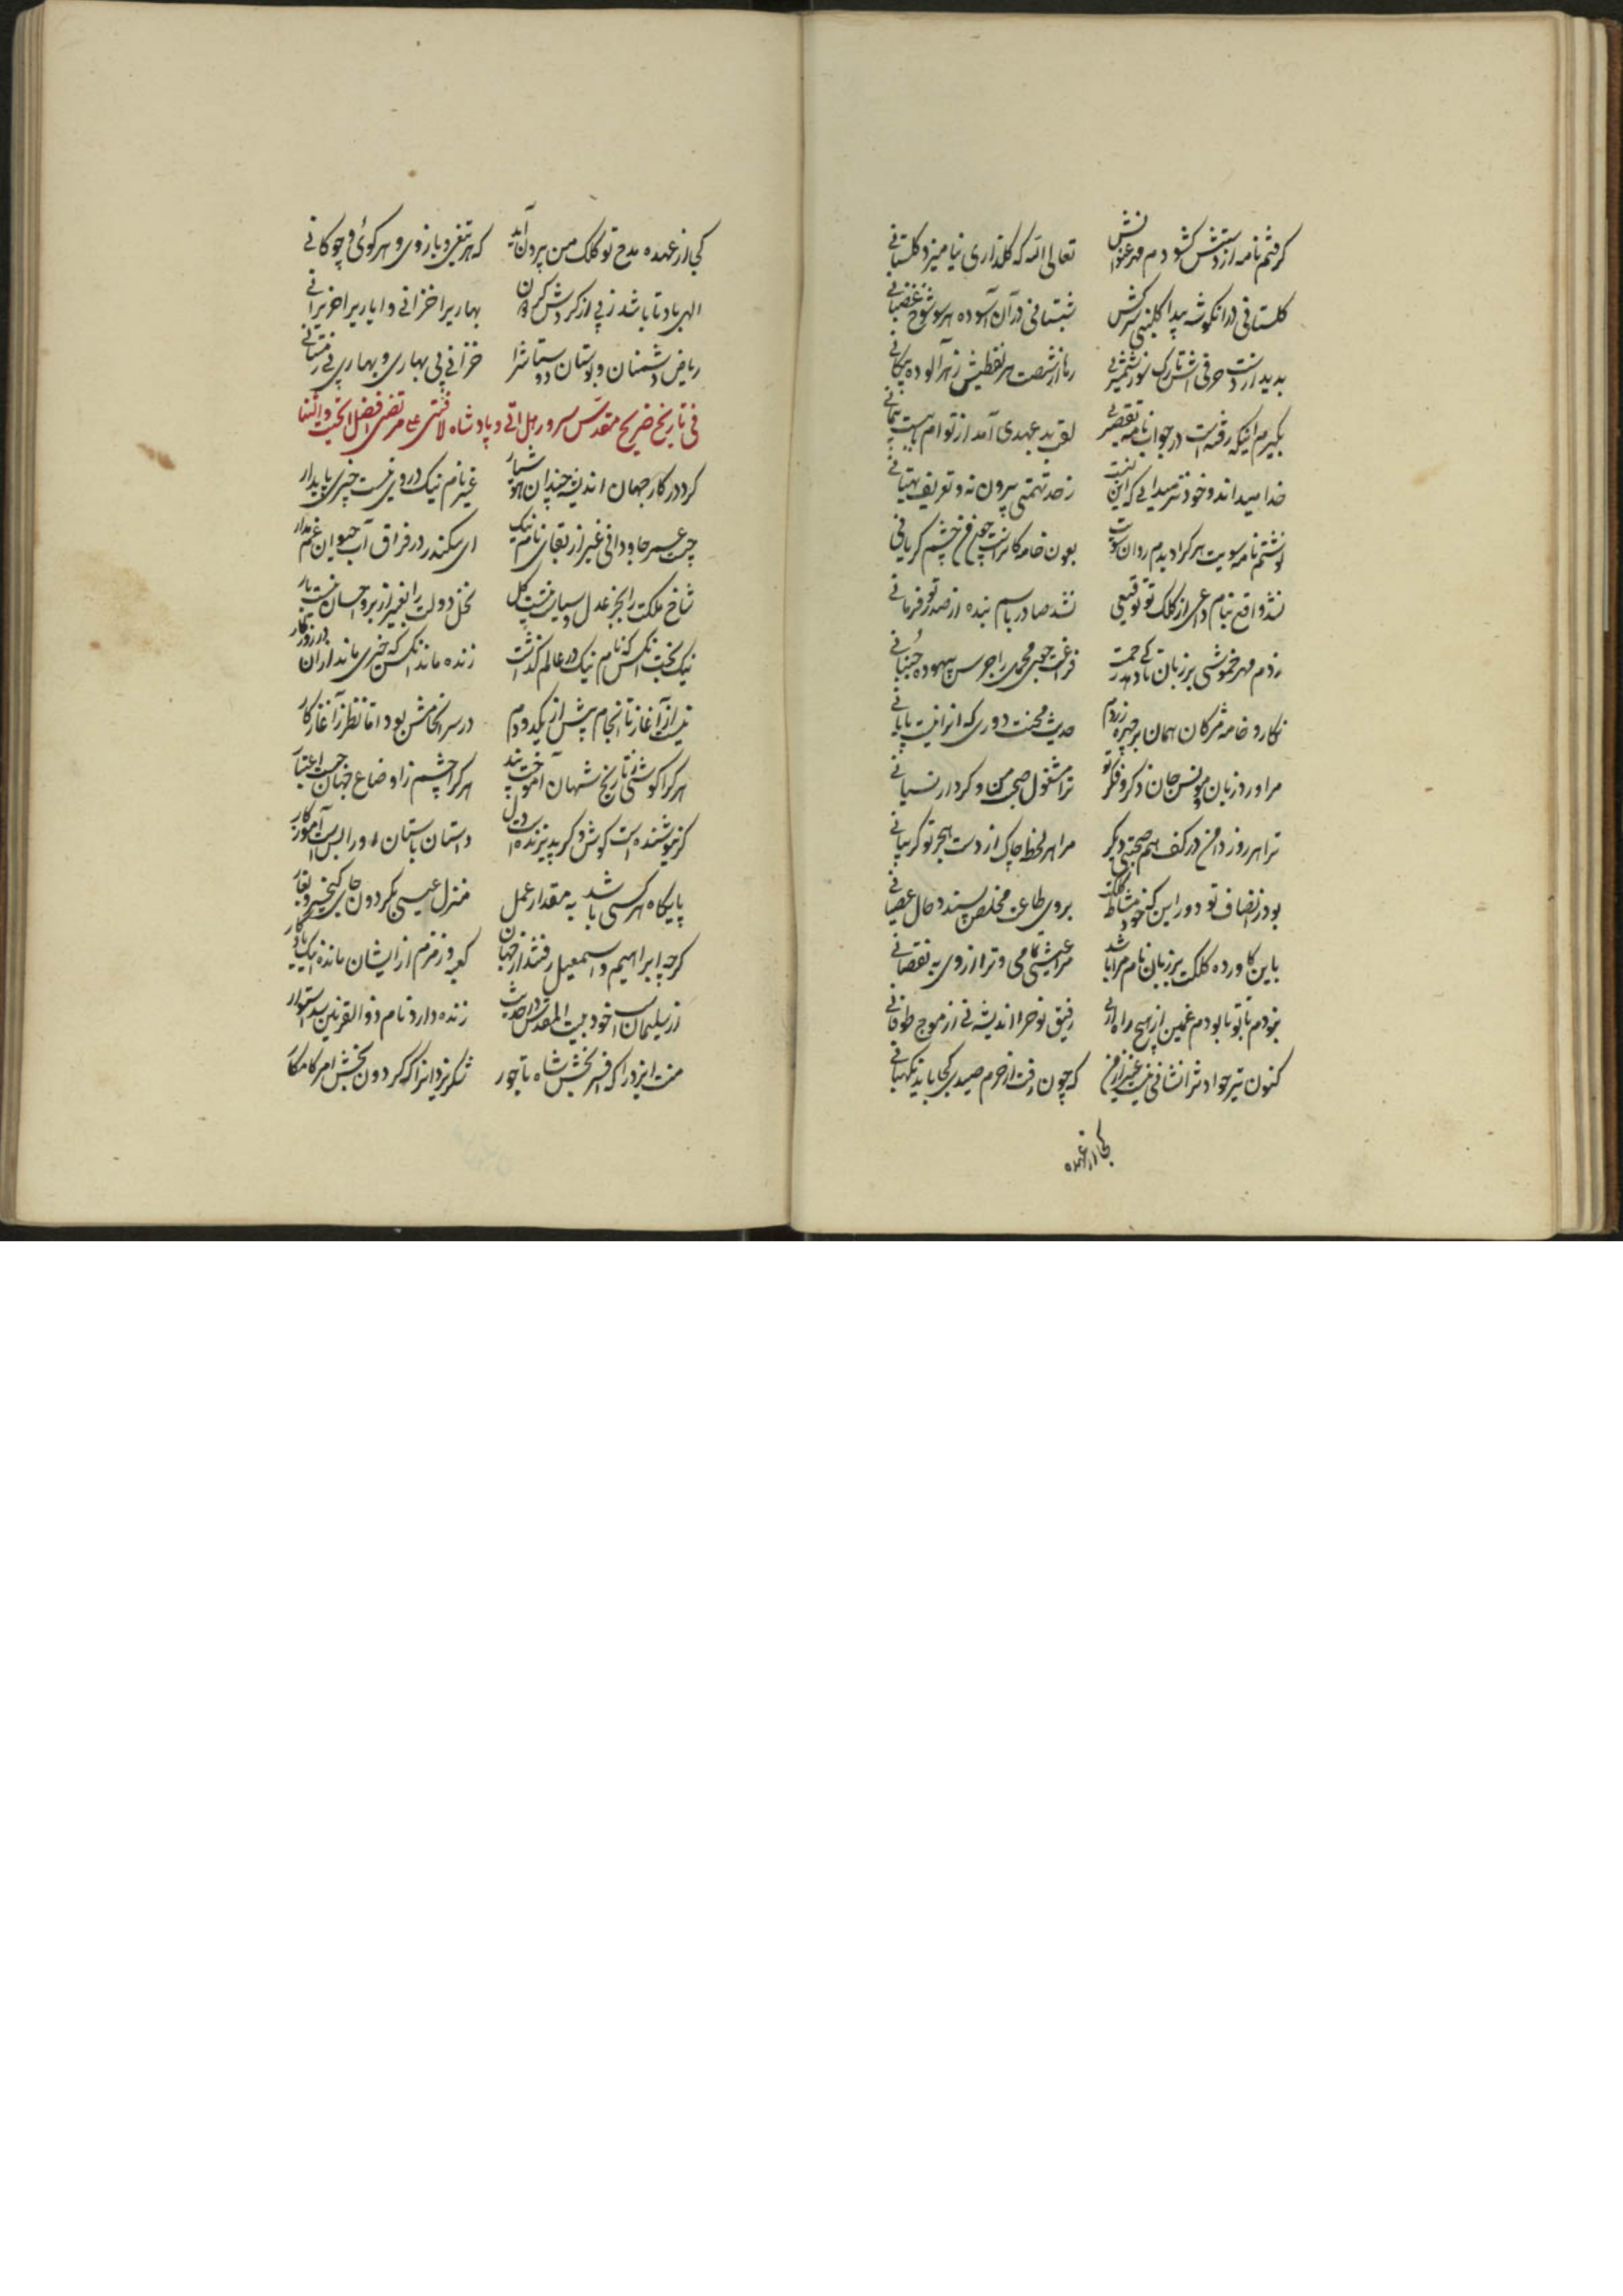 گرفتم نامه از دستش گشودم مهر عنوانش تعالی الله که گلذاری نیامیزد گلستانی
گلستانی در آن گوشه پیدا گلبنی سرکش شبستانی در آن آسوده هر سو شوخ
بدیدار نشست حرفی رها از شصت هر نقطیش زهر آلوده پیکانی
بگیرم اینکه رفته است در جواب نامه تقصیری لقب بد عهدی آمد از توام
خدا میداند و خود نیز میدانی که این نسبت ز حد تهمتی بیرون نه و تعریف بهتانی
نوشتم نامه سویت هر کرا دیدم روان سویت بعون خامه کانراست چون من چشم گریانی
نشد واقع بنام داعی از کلک تو توقیعی نشد صادر باسم بنده از صدر تو فرمانی
زدم مهر خموشی بر زبان
نگارد خامه مژگان همان بر چهره زردم حدیث محنت دوری که او را نیست پایانی
مرا ورد زبان و مونس جان ذکر و فکر تو ترا مشغول صحبت من و کردار نسیانی
ترا هر روز دامن در کف هم صحبتی دیگر مرا هر لحظه چاک از دست هجر تو گریبانی
بود ز انصاف تو دور این که خود مشاطه کلکت بروی طاعت مخلص پسندد خال عصیانی
باین کاورده کلکت بر زبان نام مرا باشد مرا عیشی تمامی و ترا از وی نه نقصانی
نبودم با تو تا بودم غمین از هیچ رفیق نوح را اندیشه نی از موج طوفانی
کنون تیر حوادث را نشانی نیست غیر از من که چون رفت از حرم صیدی کجا یابد نگهبانی
کجا از عهده
کجا از عهده مدح تو کلک من برون آید که هر تیغی و بازوی و هر گوئی و چوگانی
الهی باد تا باشد ز پی از گردش گردون بهاریرا خزانی و ایاریرا حزیرانی
ریاض دشمنان و بوستان دوستانت را خزانی بی بهاری و بهاری بی زمستانی
فی تاریخ ضریح مقدس سرور هل اتی و پادشاه لافتی علی مرتضی افضل التحیت والثنا
کرد در کار جهان اندیشه چندان هوشیار غیر نام نیک در وی نیست چیزی پایدار
چیست عمر جاودانی غیر از بقای نام نیک ای سکندر در فراق آب حیوان غم مدار
شاخ ملکت را بجز عدل و سیاست نیست گل نخل دولت را بغیر از بر و احسان نیست بار
نیک بخت آنکس که نام نیک در عالم گذاشت زنده ماند آنکس که خیری ماند از او در روزگار
نیست از آغاز تا انجام بیش از یکدو دم در سرانجامش بود دانا نظر ز آغاز کار
هر کرا گوشی ز تاریخ شهان آموخت پند هر کرا چشم ز اوضاع جهان جست اعتبار
گر نیوشنده است گوش و گر پذیرنده است دل داستان باستان او را بس است آموزگار
پایگاه هر کسی باشد به مقدار عمل منزل عیسی بگردون جای کیخسرو بغار
گرچه ابراهیم و اسمعیل رفتند از جهان کعبه و زمزم از ایشان مانده اینک یادگار
از سلیمان خود بیت المقدس حدیث زنده دارد نام ذوالقرنین سد استوار
منت ایزد را که افسر بخش شاه تاجور شکر یزدانرا که گردون بخش امر کامکار